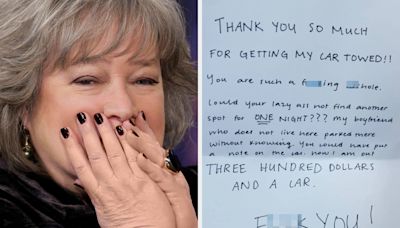 THANK YOU SO MUCH
FOR GETTING MY CAR TOWED!!
You are such a
Could your lazy ass not find another
spot for ONE NIGHT??? my boyfriend
who does not live here parked there
without knowing. You could have put
a note on the car. now I am out
THREE HUNDRED DOLLARS
AND A CAR.
YOU!